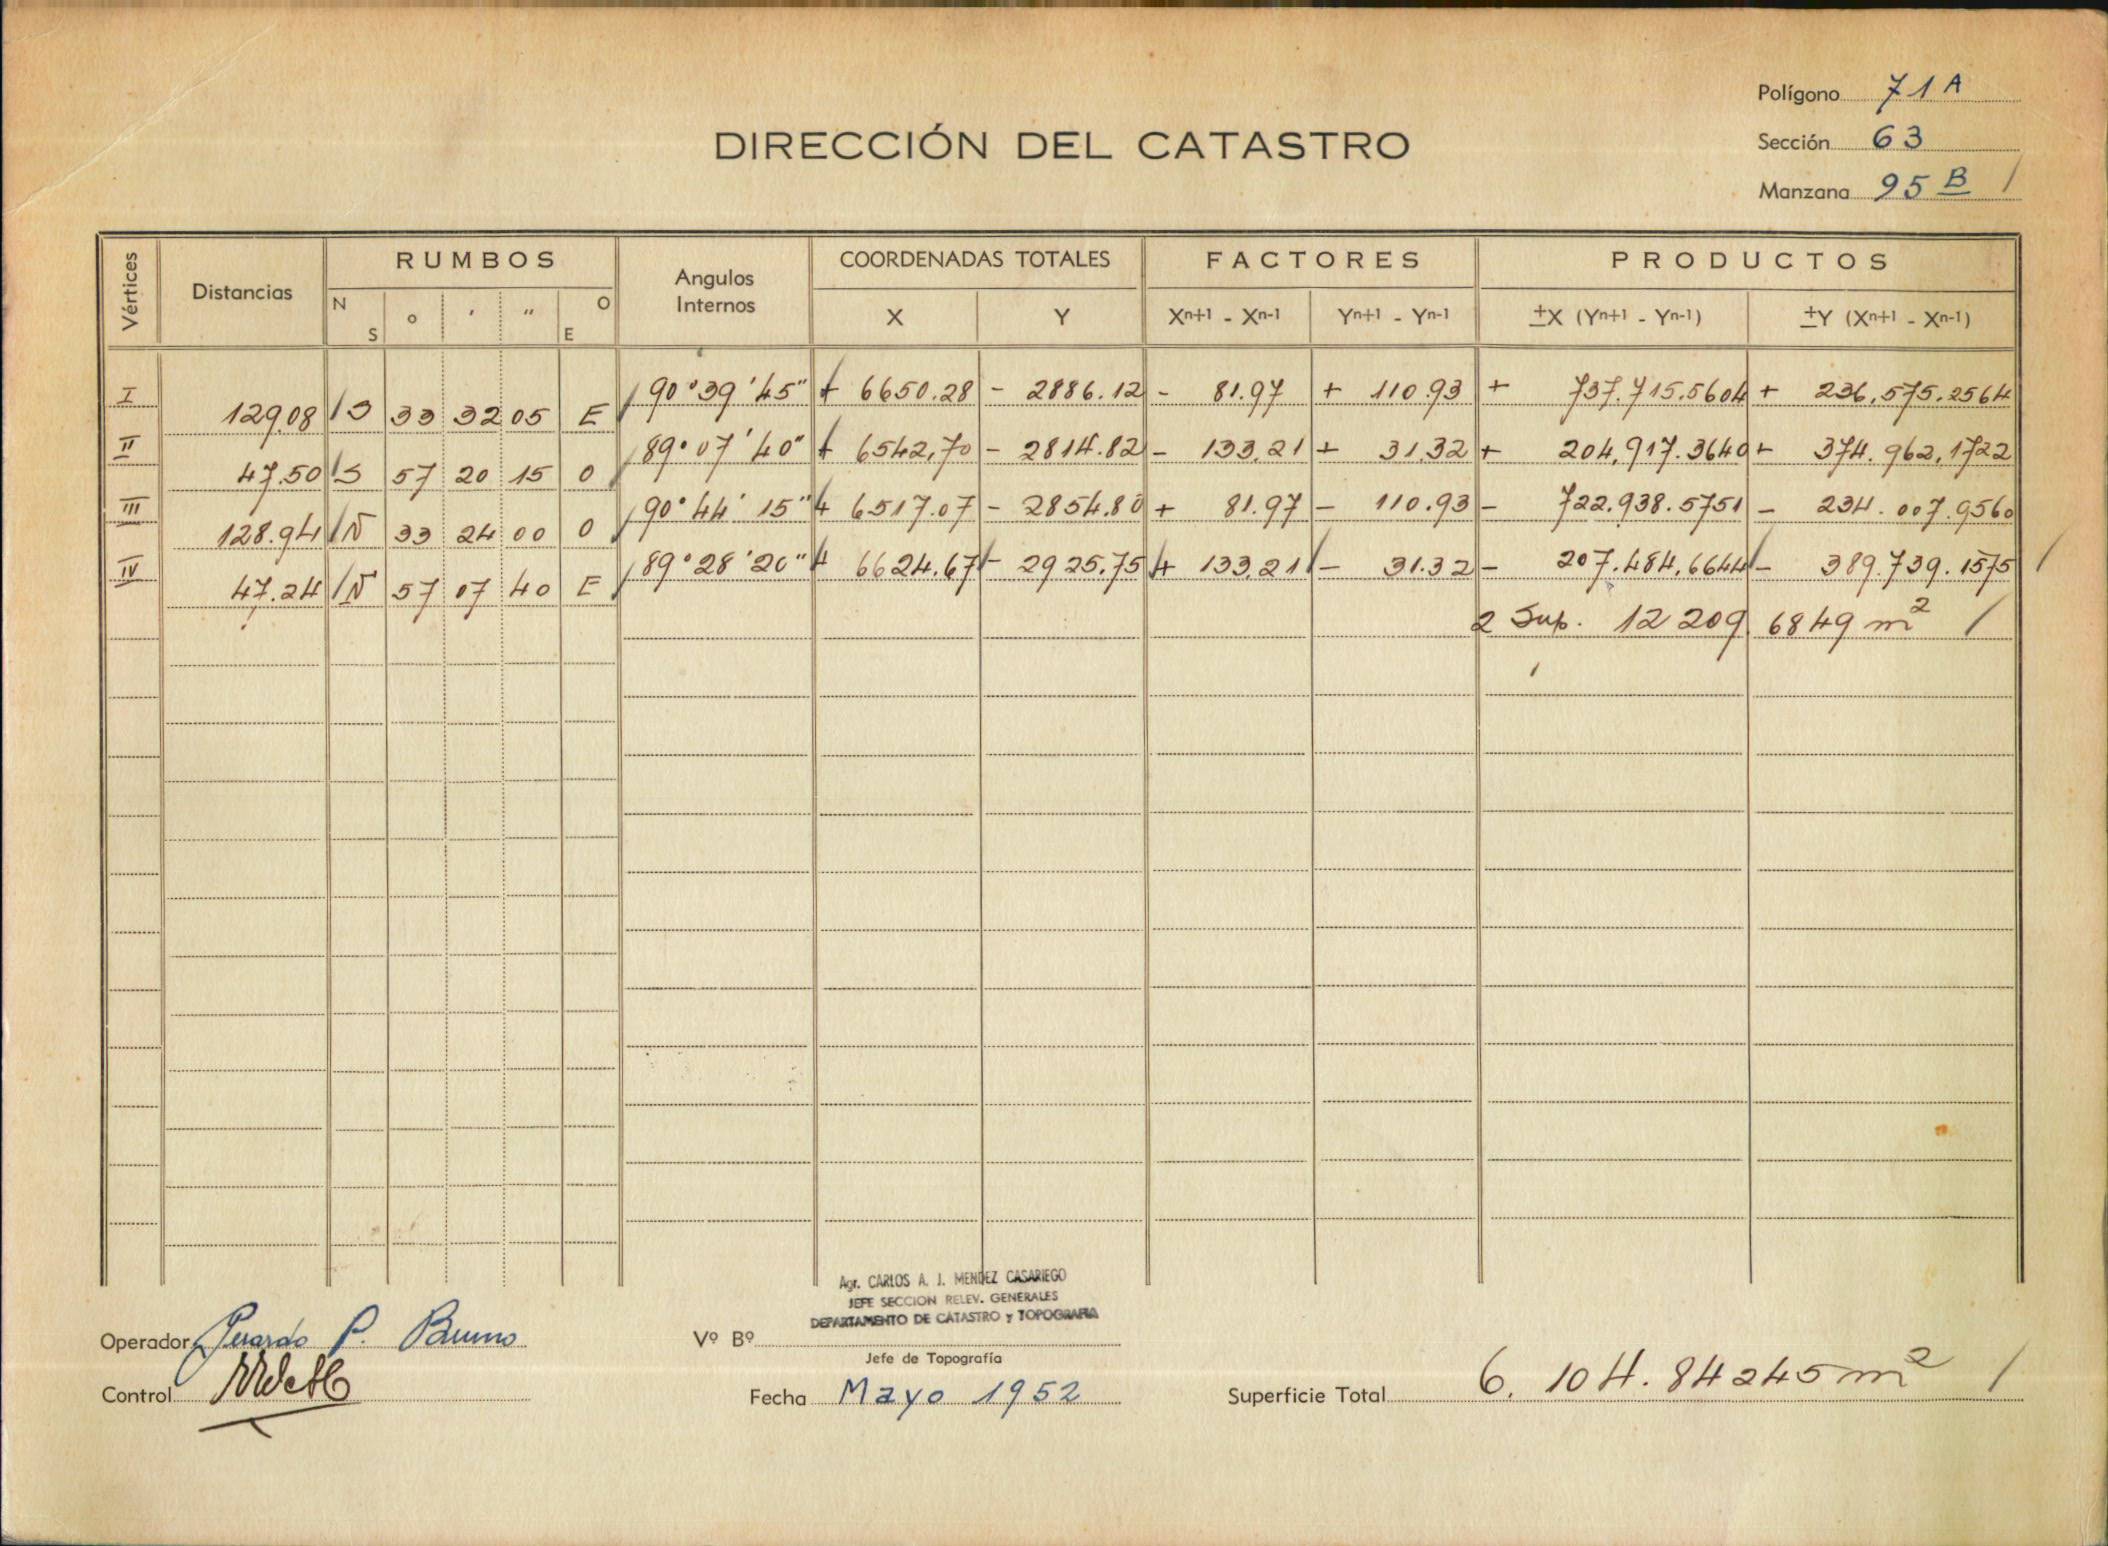 Polígono 71 A
DIRECCIÓN DEL CATASTRO
Sección 63
Manzana 95 B /
Vértices Distancias RUMBOS Angulos Internos COORDENADAS TOTALES FACTORES PRODUCTOS
N S o ' " O E X Y Xn+1 - Xn-1 Yn+1 - Yn-1 ±X (Yn+1 - Yn-1) ±Y (Xn+1 - Xn-1)
I 129.08 / S 33 32 05 E / 90° 39' 45" + 6650.28 - 2886.12 - 81.97 + 110.93 + 737.715.5604 + 236,575.2564
II 47.50 S 57 20 15 O / 89° 07' 40" + 6542,70 - 2814.82 - 133,21 + 31.32 + 204,917.3640 + 374.962,1722
III 128.94 / N 33 24 00 O / 90° 44' 15" + 6517.07 - 2854.80 + 81.97 - 110.93 - 722.938.5751 - 234.007.9560
IV 47.24 / N 57 07 40 E / 89° 28' 20" + 6624.67 - 2925.75 + 133.21 - 31.32 - 207.484,6644 - 389.739.1575 /
2 Sup. 12 209. 6849 m² /
Agr. CARLOS A. J. MENDEZ CASARIEGO
JEFE SECCION RELEV. GENERALES
DEPARTAMENTO DE CATASTRO y TOPOGRAFIA
Operador Gerardo P. Bruno Vº Bº
Jefe de Topografía
Control Fecha Mayo 1952 Superficie Total 6. 104.84245 m² /